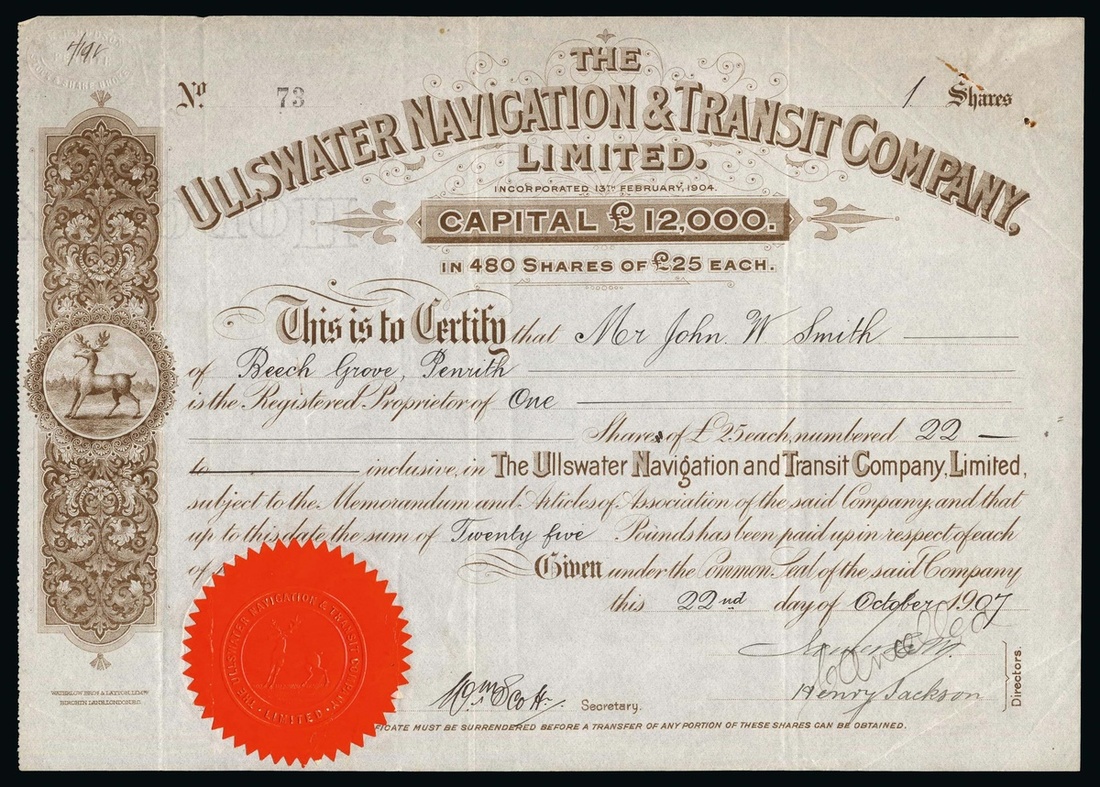 No 73
1 Shares
THE
ULLSWATER NAVIGATION & TRANSIT COMPANY,
LIMITED.
INCORPORATED 13TH FEBRUARY, 1904.
CAPITAL £12,000.
IN 480 SHARES OF £25 EACH.
This is to Certify that Mr John. W Smith
of Beech Grove, Penrith
is the Registered Proprietor of One
Share of £25 each, numbered 22
to inclusive, in The Ullswater Navigation and Transit Company, Limited,
subject to the Memorandum and Articles of Association of the said Company, and that
up to this date the sum of Twenty five Pounds has been paid up in respect of each
of
Given under the Common Seal of the said Company
this 22nd day of October 1907
Cancelled
Henry Jackson
Directors.
Wm Scott Secretary.
THE ULLSWATER NAVIGATION & TRANSIT COMPANY
LIMITED
FICATE MUST BE SURRENDERED BEFORE A TRANSFER OF ANY PORTION OF THESE SHARES CAN BE OBTAINED.